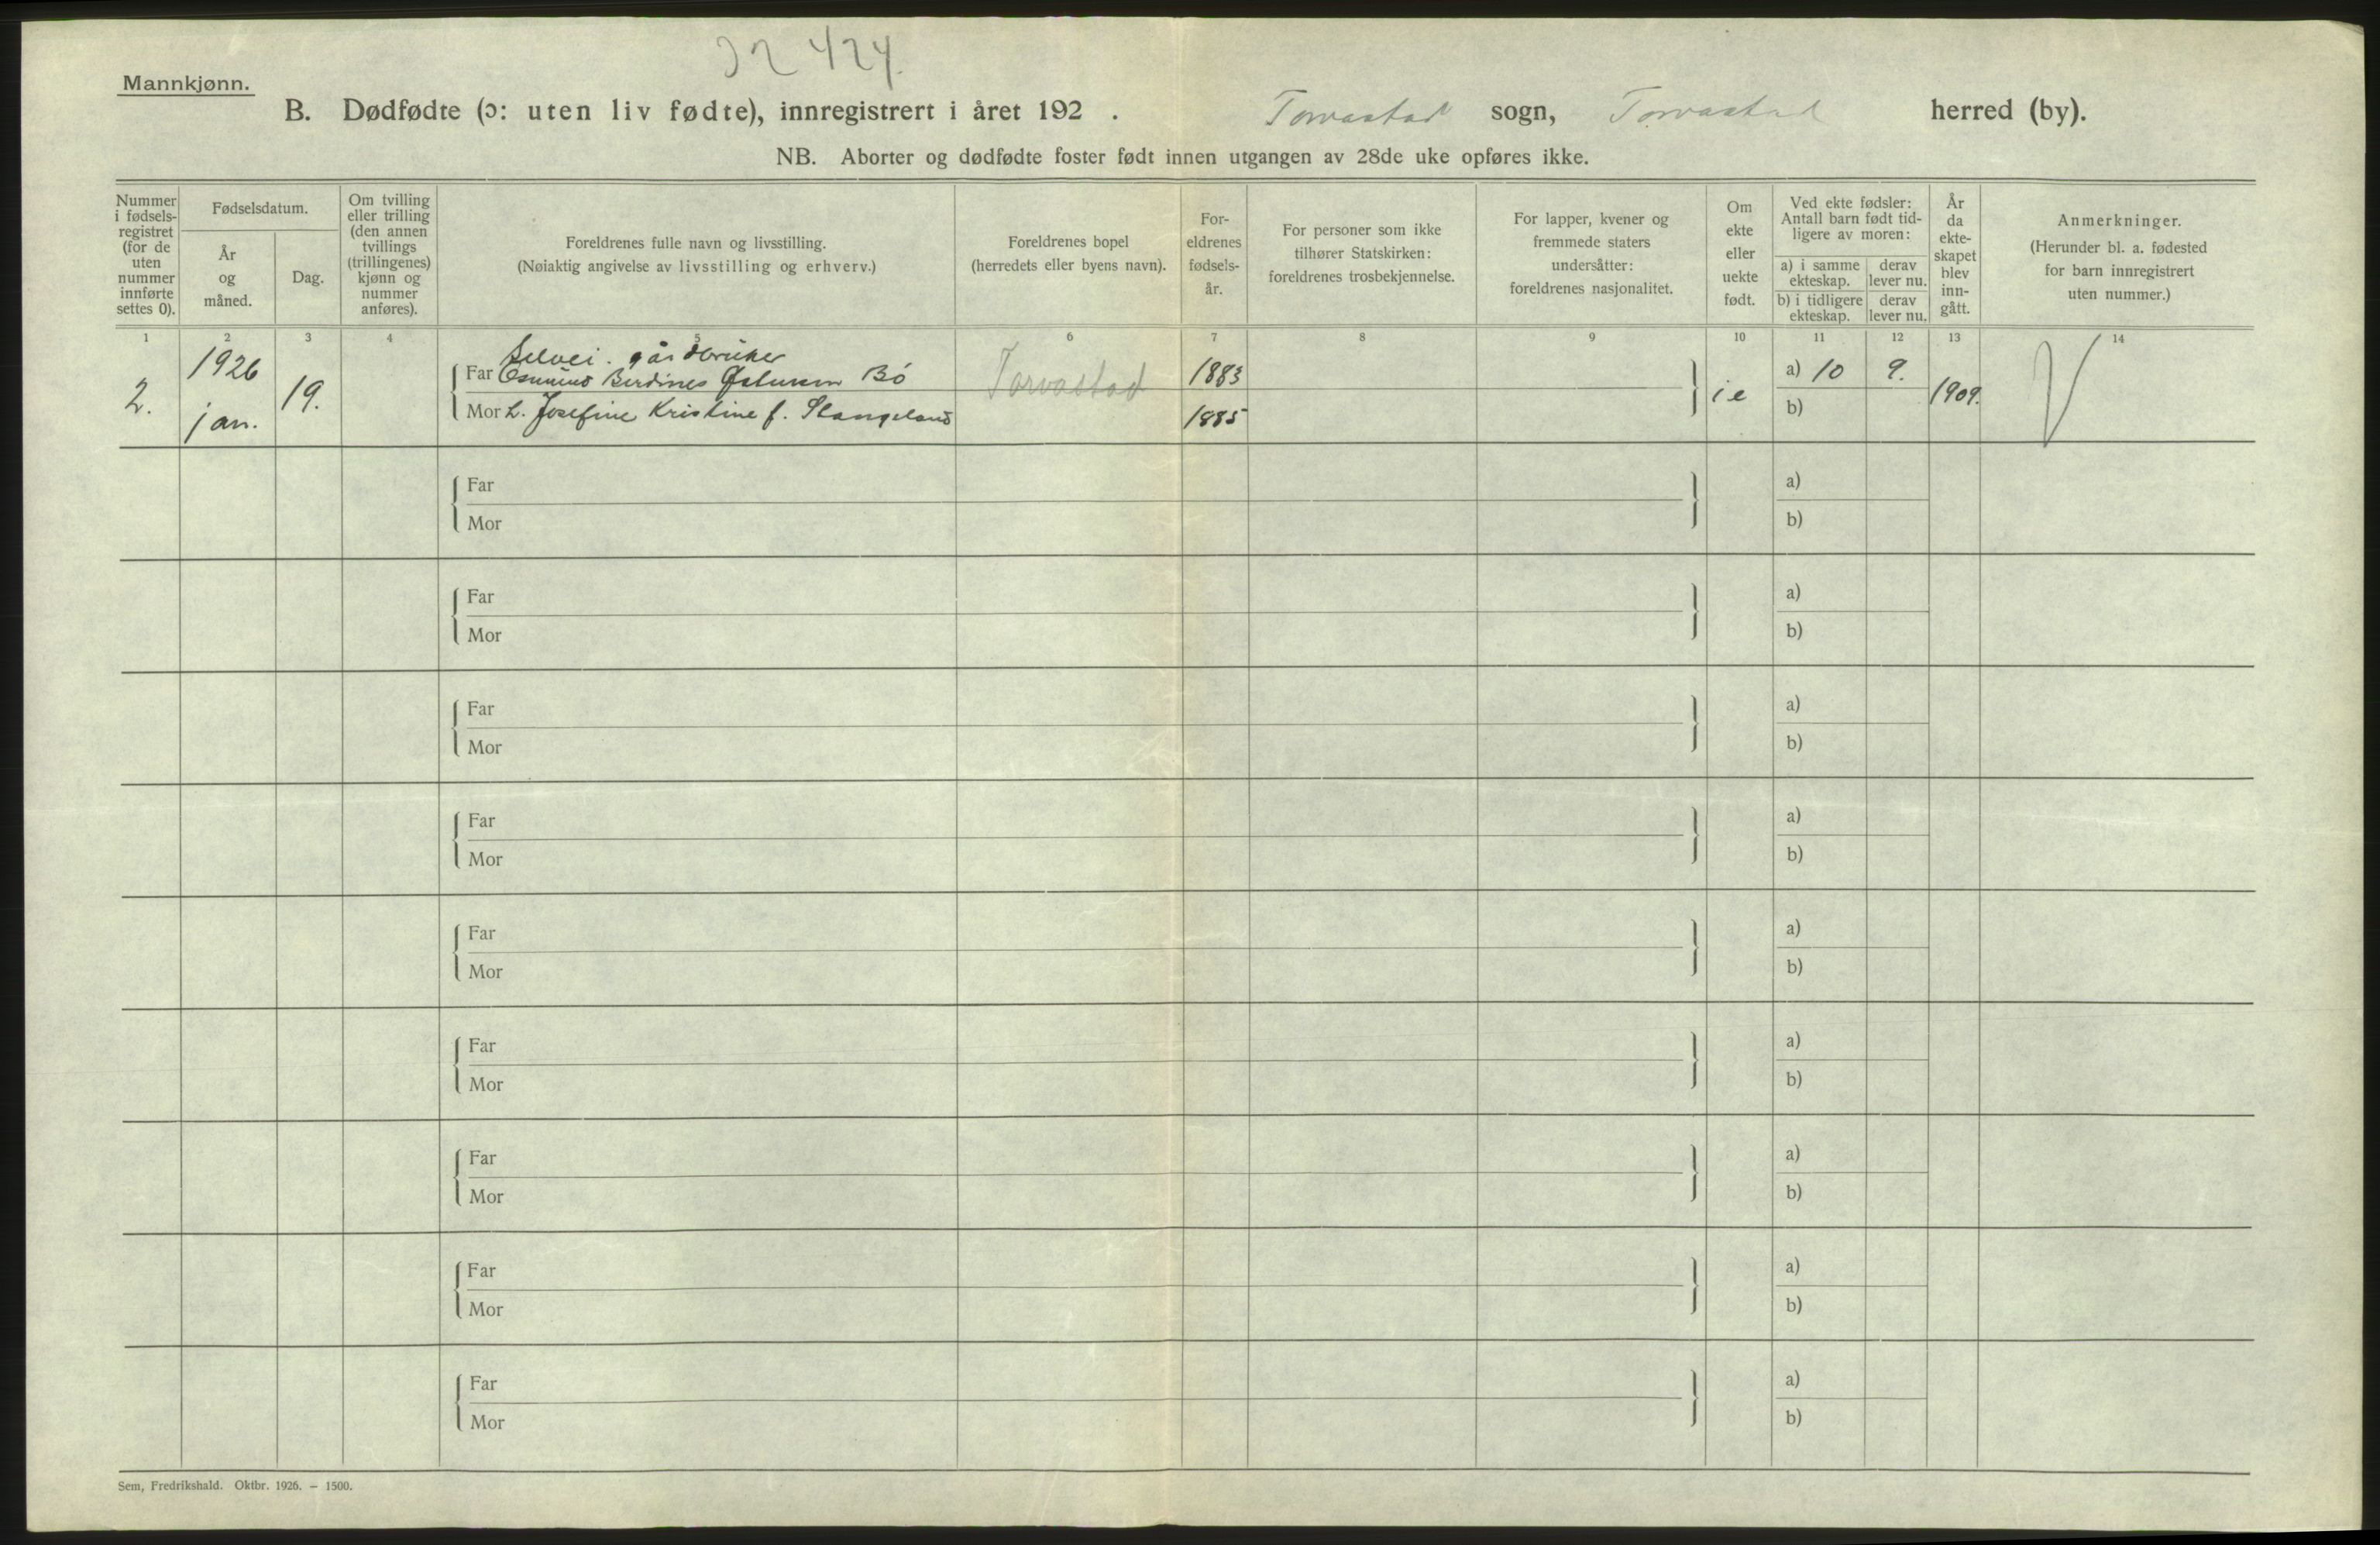 32424
Mannkjønn.
B. Dødfødte (ɔ: uten liv fødte), innregistrert i året 192 . Torvastad sogn, Torvastad herred (by).
NB. Aborter og dødfødte foster født innen utgangen av 28de uke opføres ikke.
Nummer
i fødsels-
registret
(for de
uten
nummer
innførte
settes 0).
Fødselsdatum.
År
og
måned.
Dag.
Om tvilling
eller trilling
(den annen
tvillings
(trillingenes)
kjønn og
nummer
anføres).
Foreldrenes fulle navn og livsstilling.
(Nøiaktig angivelse av livsstilling og erhverv.)
Foreldrenes bopel
(herredets eller byens navn).
For-
eldrenes
fødsels-
år.
For personer som ikke
tilhører Statskirken:
foreldrenes trosbekjennelse.
For lapper, kvener og
fremmede staters
undersåtter:
foreldrenes nasjonalitet.
Om
ekte
eller
uekte
født.
Ved ekte fødsler:
Antall barn født tid-
ligere av moren:
a) i samme
ekteskap.
derav
lever nu.
b) i tidligere
ekteskap.
derav
lever nu.
År
da
ekte-
skapet
blev
inn-
gått.
Anmerkninger.
(Herunder bl. a. fødested
for barn innregistrert
uten nummer.)
1 2 3 4 5 6 7 8 9 10 11 12 13 14
2.
1926
jan.
19.
Selvei. gårdbruker
Far Berdines Bö
Mor L. Josefine Kristine f. Stangeland
Torvastad
1883
1885
i e
a) 10 9.
b)
1909.
Far a)
Mor b)
Far a)
Mor b)
Far a)
Mor b)
Far a)
Mor b)
Far a)
Mor b)
Far a)
Mor b)
Far a)
Mor b)
Far a)
Mor b)
Far a)
Mor b)
Sem, Fredrikshald. Oktbr. 1926. – 1500.